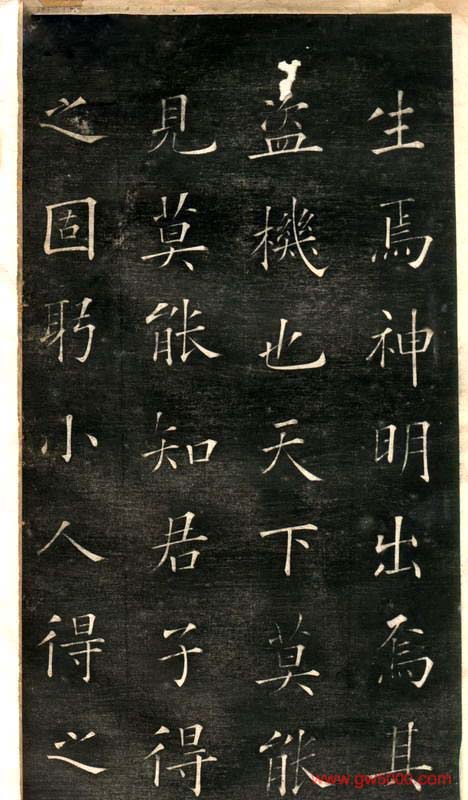 生焉神明出焉其
盗機也天下莫能
見莫能知君子得
之固躬小人得之
www.gw5000.com